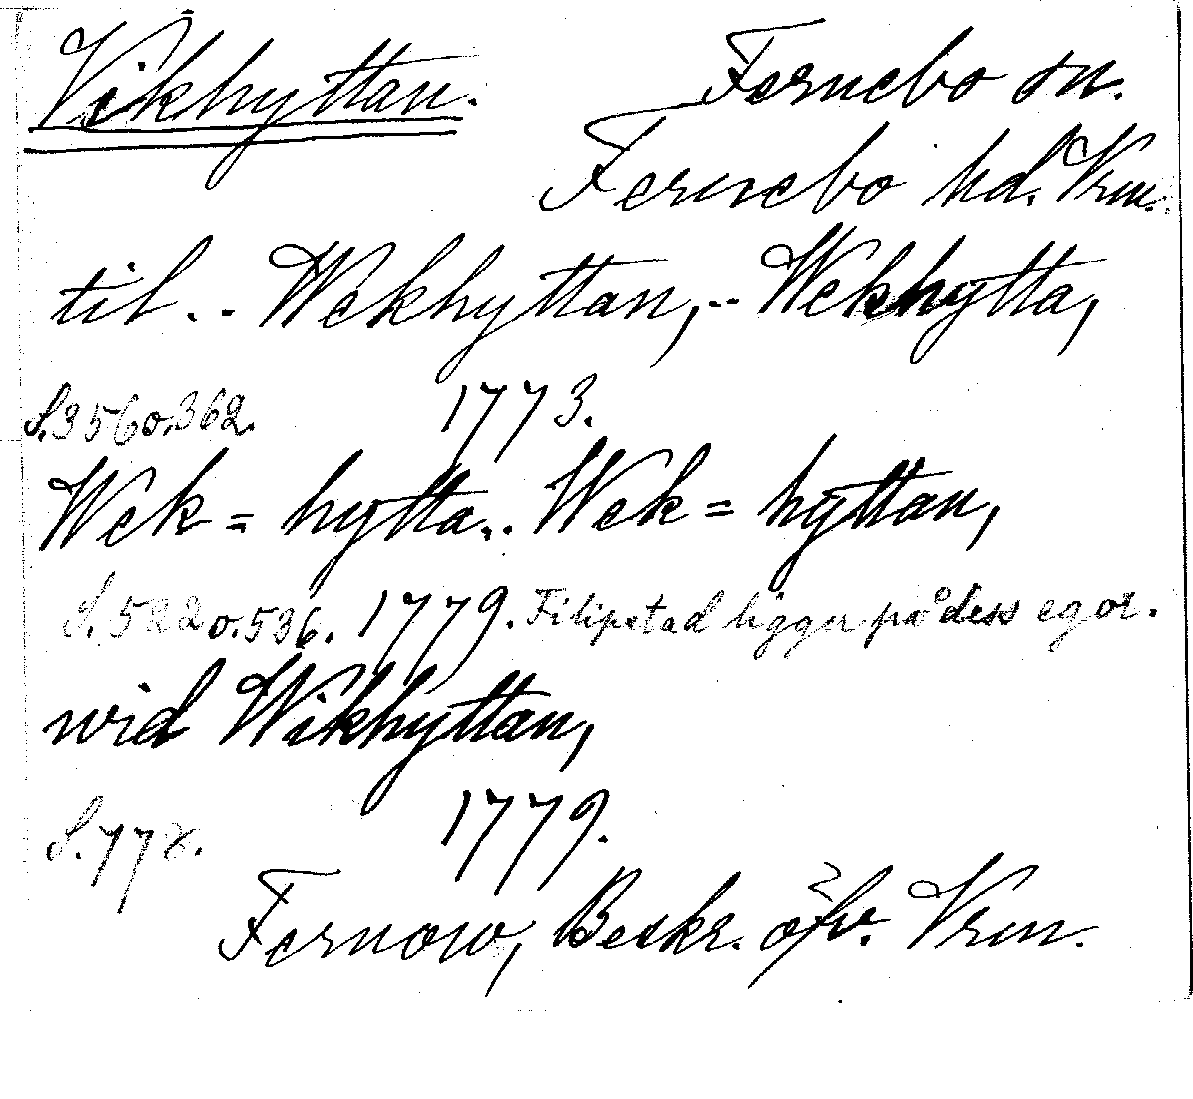 Vikhyttan.
Fernebo sn.
Fernebo hd. Vrm.
til .. Wekhyttan, .. Wekhytta,
S. 356 o. 362. 1773.
Wek = hytta .. Wek = hyttan,
S. 522 o. 536. 1779. Filipstad ligger på dess egor.
wid Wikhyttan,
S. 778. 1779.
Fernow, Beskr. öfv. Vrm.